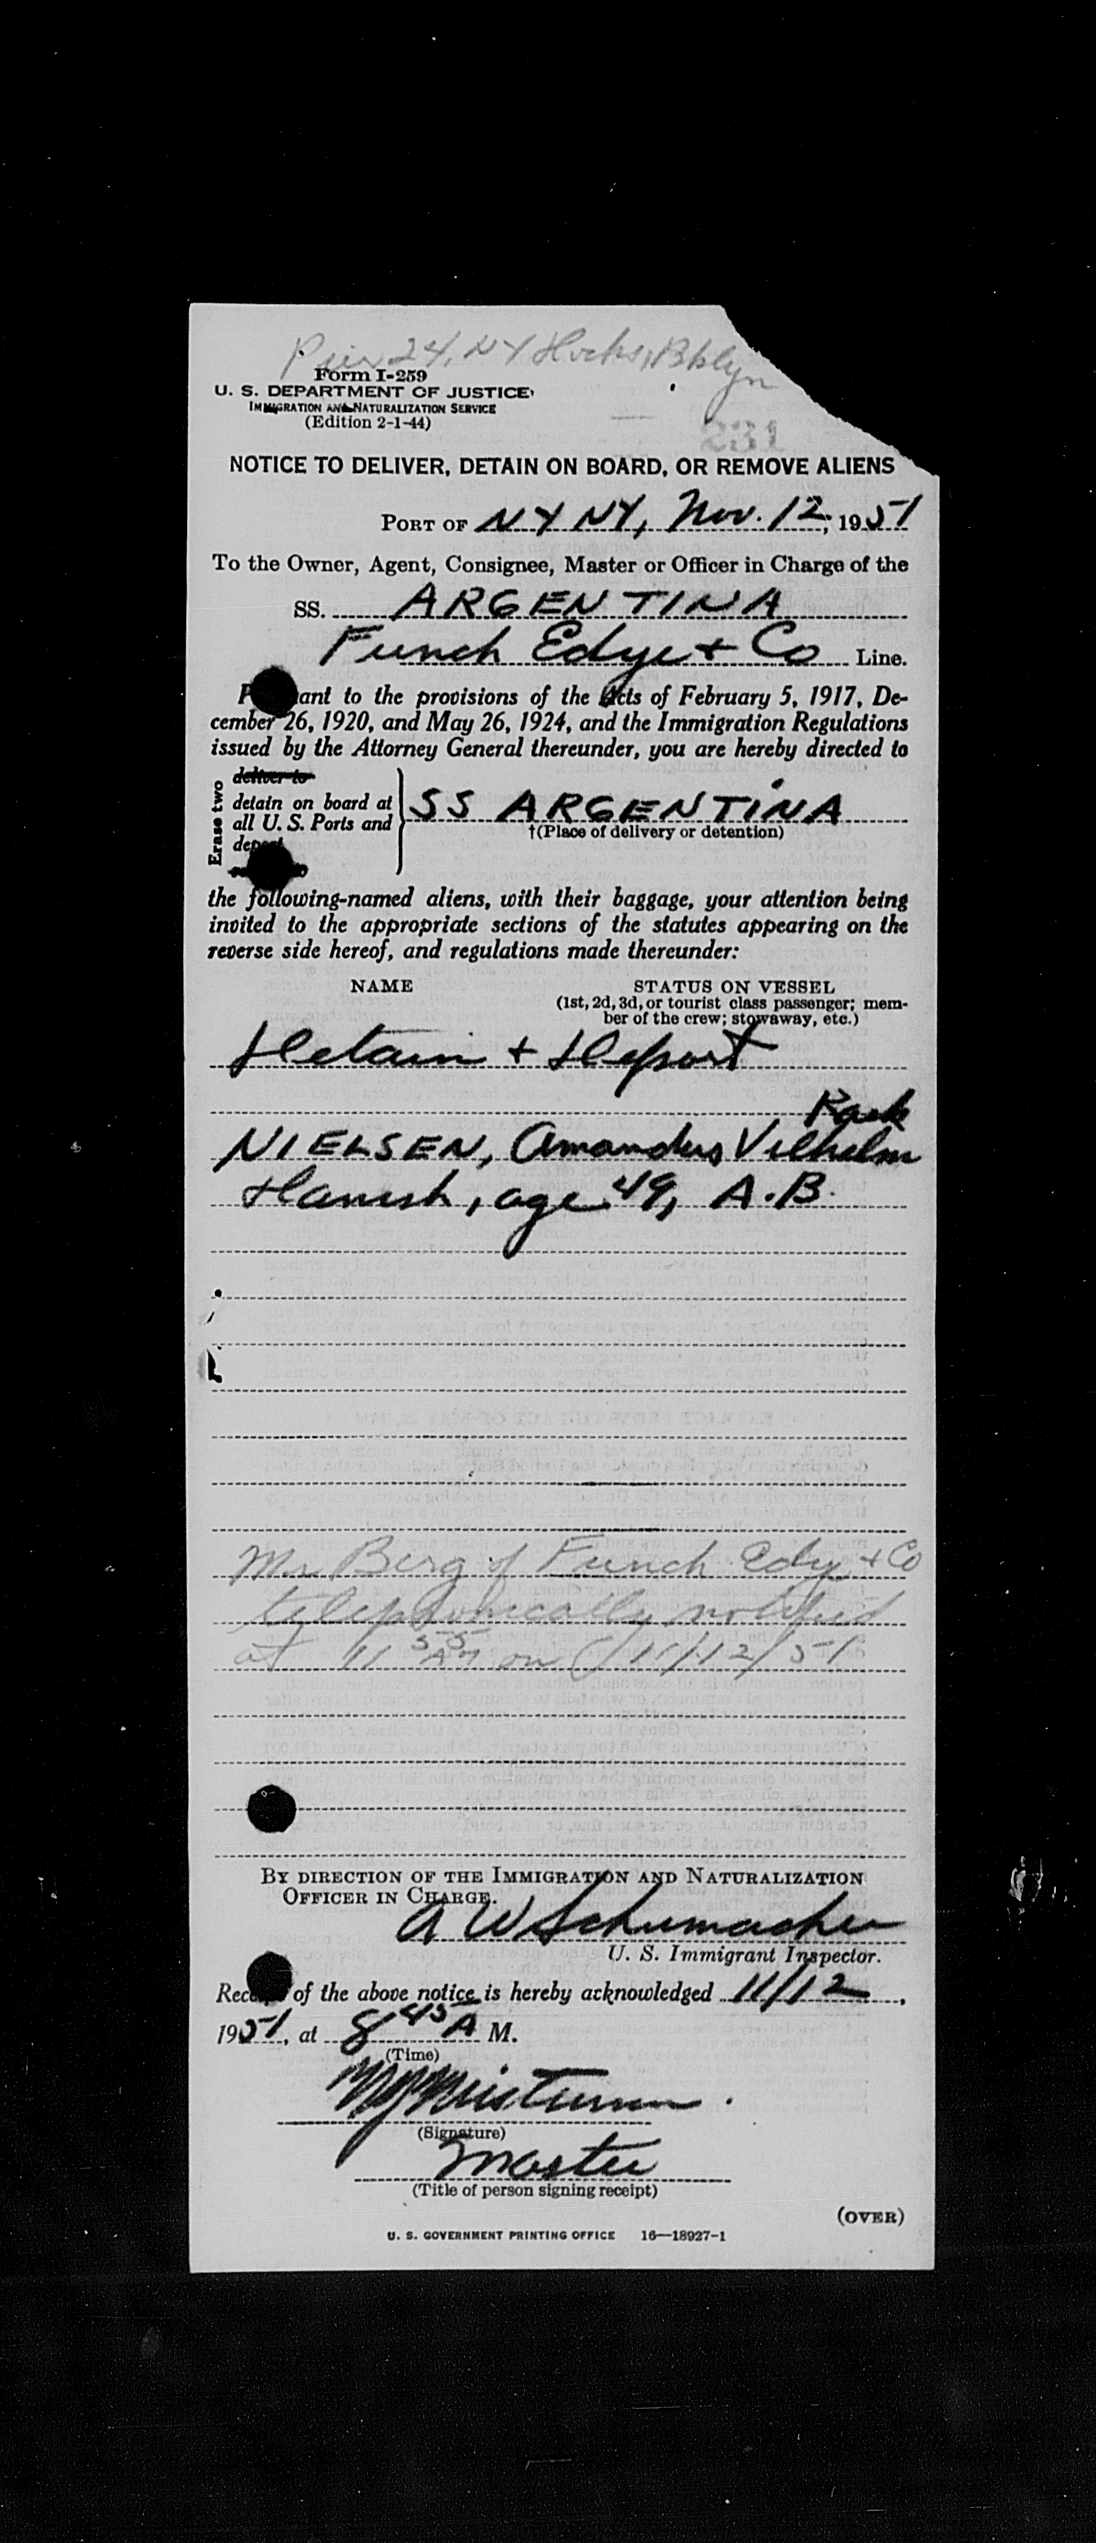 Pier 24, NY Docks, Bklyn
Form I-259
U. S. DEPARTMENT OF JUSTICE
IMMIGRATION AND NATURALIZATION SERVICE
(Edition 2-1-44)
231
NOTICE TO DELIVER, DETAIN ON BOARD, OR REMOVE ALIENS
PORT OF NY NY, Nov. 12, 1951
To the Owner, Agent, Consignee, Master or Officer in Charge of the
SS. ARGENTINA
Funch Edye + Co Line.
Pursuant to the provisions of the Acts of February 5, 1917, De-
cember 26, 1920, and May 26, 1924, and the Immigration Regulations
issued by the Attorney General thereunder, you are hereby directed to
Erase two
deliver to
detain on board at
all U. S. Ports and
deport
SS ARGENTINA
†(Place of delivery or detention)
the following-named aliens, with their baggage, your attention being
invited to the appropriate sections of the statutes appearing on the
reverse side hereof, and regulations made thereunder:
NAME STATUS ON VESSEL
(1st, 2d, 3d, or tourist class passenger; mem-
ber of the crew; stowaway, etc.)
Detain + Deport
Rask
NIELSEN, Amandus Vilhelm
Danish, age 49, A.B.
Mr Berg of Funch Edy + Co
telephonically notified
at 11 55 AM on 11/12/51
BY DIRECTION OF THE IMMIGRATION AND NATURALIZATION
OFFICER IN CHARGE.
A W Schumacher
U. S. Immigrant Inspector.
Receipt of the above notice is hereby acknowledged 11/12,
1951, at 8 45 A M.
(Time)
(Signature)
Master
(Title of person signing receipt)
(OVER)
U. S. GOVERNMENT PRINTING OFFICE 16—18927-1